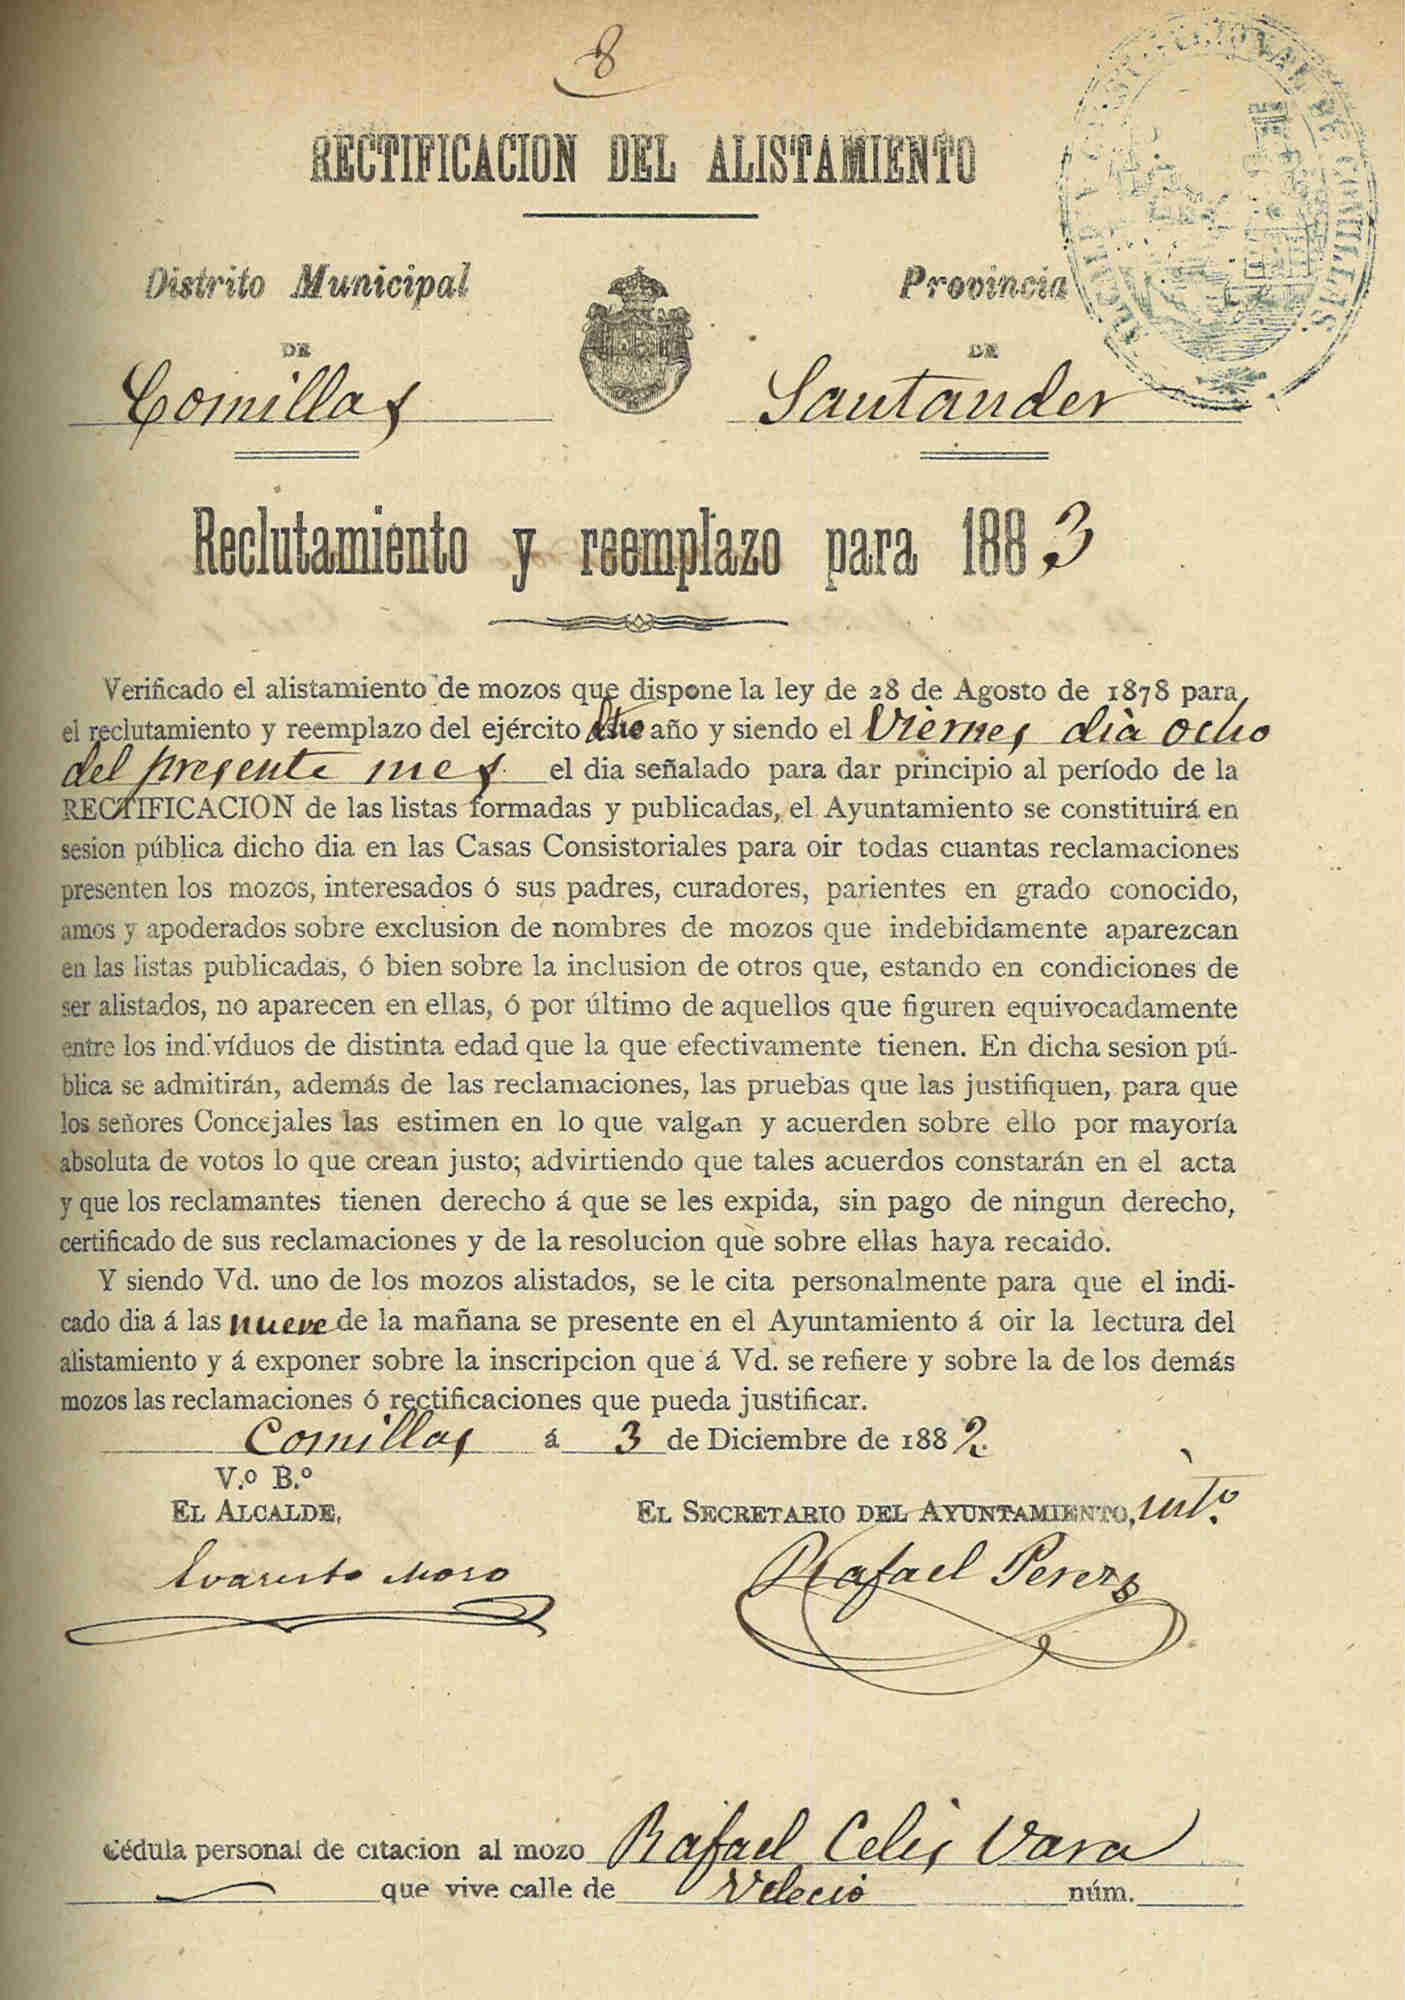 8
RECTIFICACION DEL ALISTAMIENTO
Distrito Municipal
DE
Comillas
Provincia
DE
Santander
DE COMILLAS
Reclutamiento y reemplazo para 1883
Verificado el alistamiento de mozos que dispone la ley de 28 de Agosto de 1878 para
el reclutamiento y reemplazo del ejército dho año y siendo el Viernes dia ocho
del presente mes el dia señalado para dar principio al período de la
RECTIFICACION de las listas formadas y publicadas, el Ayuntamiento se constituirá en
sesion pública dicho dia en las Casas Consistoriales para oir todas cuantas reclamaciones
presenten los mozos, interesados ó sus padres, curadores, parientes en grado conocido,
amos y apoderados sobre exclusion de nombres de mozos que indebidamente aparezcan
en las listas publicadas, ó bien sobre la inclusion de otros que, estando en condiciones de
ser alistados, no aparecen en ellas, ó por último de aquellos que figuren equivocadamente
entre los indivíduos de distinta edad que la que efectivamente tienen. En dicha sesion pú-
blica se admitirán, además de las reclamaciones, las pruebas que las justifiquen, para que
los señores Concejales las estimen en lo que valgan y acuerden sobre ello por mayoría
absoluta de votos lo que crean justo; advirtiendo que tales acuerdos constarán en el acta
y que los reclamantes tienen derecho á que se les expida, sin pago de ningun derecho,
certificado de sus reclamaciones y de la resolucion que sobre ellas haya recaido.
Y siendo Vd. uno de los mozos alistados, se le cita personalmente para que el indi-
cado dia á las nueve de la mañana se presente en el Ayuntamiento á oir la lectura del
alistamiento y á exponer sobre la inscripcion que á Vd. se refiere y sobre la de los demás
mozos las reclamaciones ó rectificaciones que pueda justificar.
Comillas á 3 de Diciembre de 1882.
V.º B.º
EL ALCALDE,
EL SECRETARIO DEL AYUNTAMIENTO, intº.
Evaristo Moro
Rafael Perez
Cédula personal de citacion al mozo Rafael Celis Vara
que vive calle de Velecio núm.